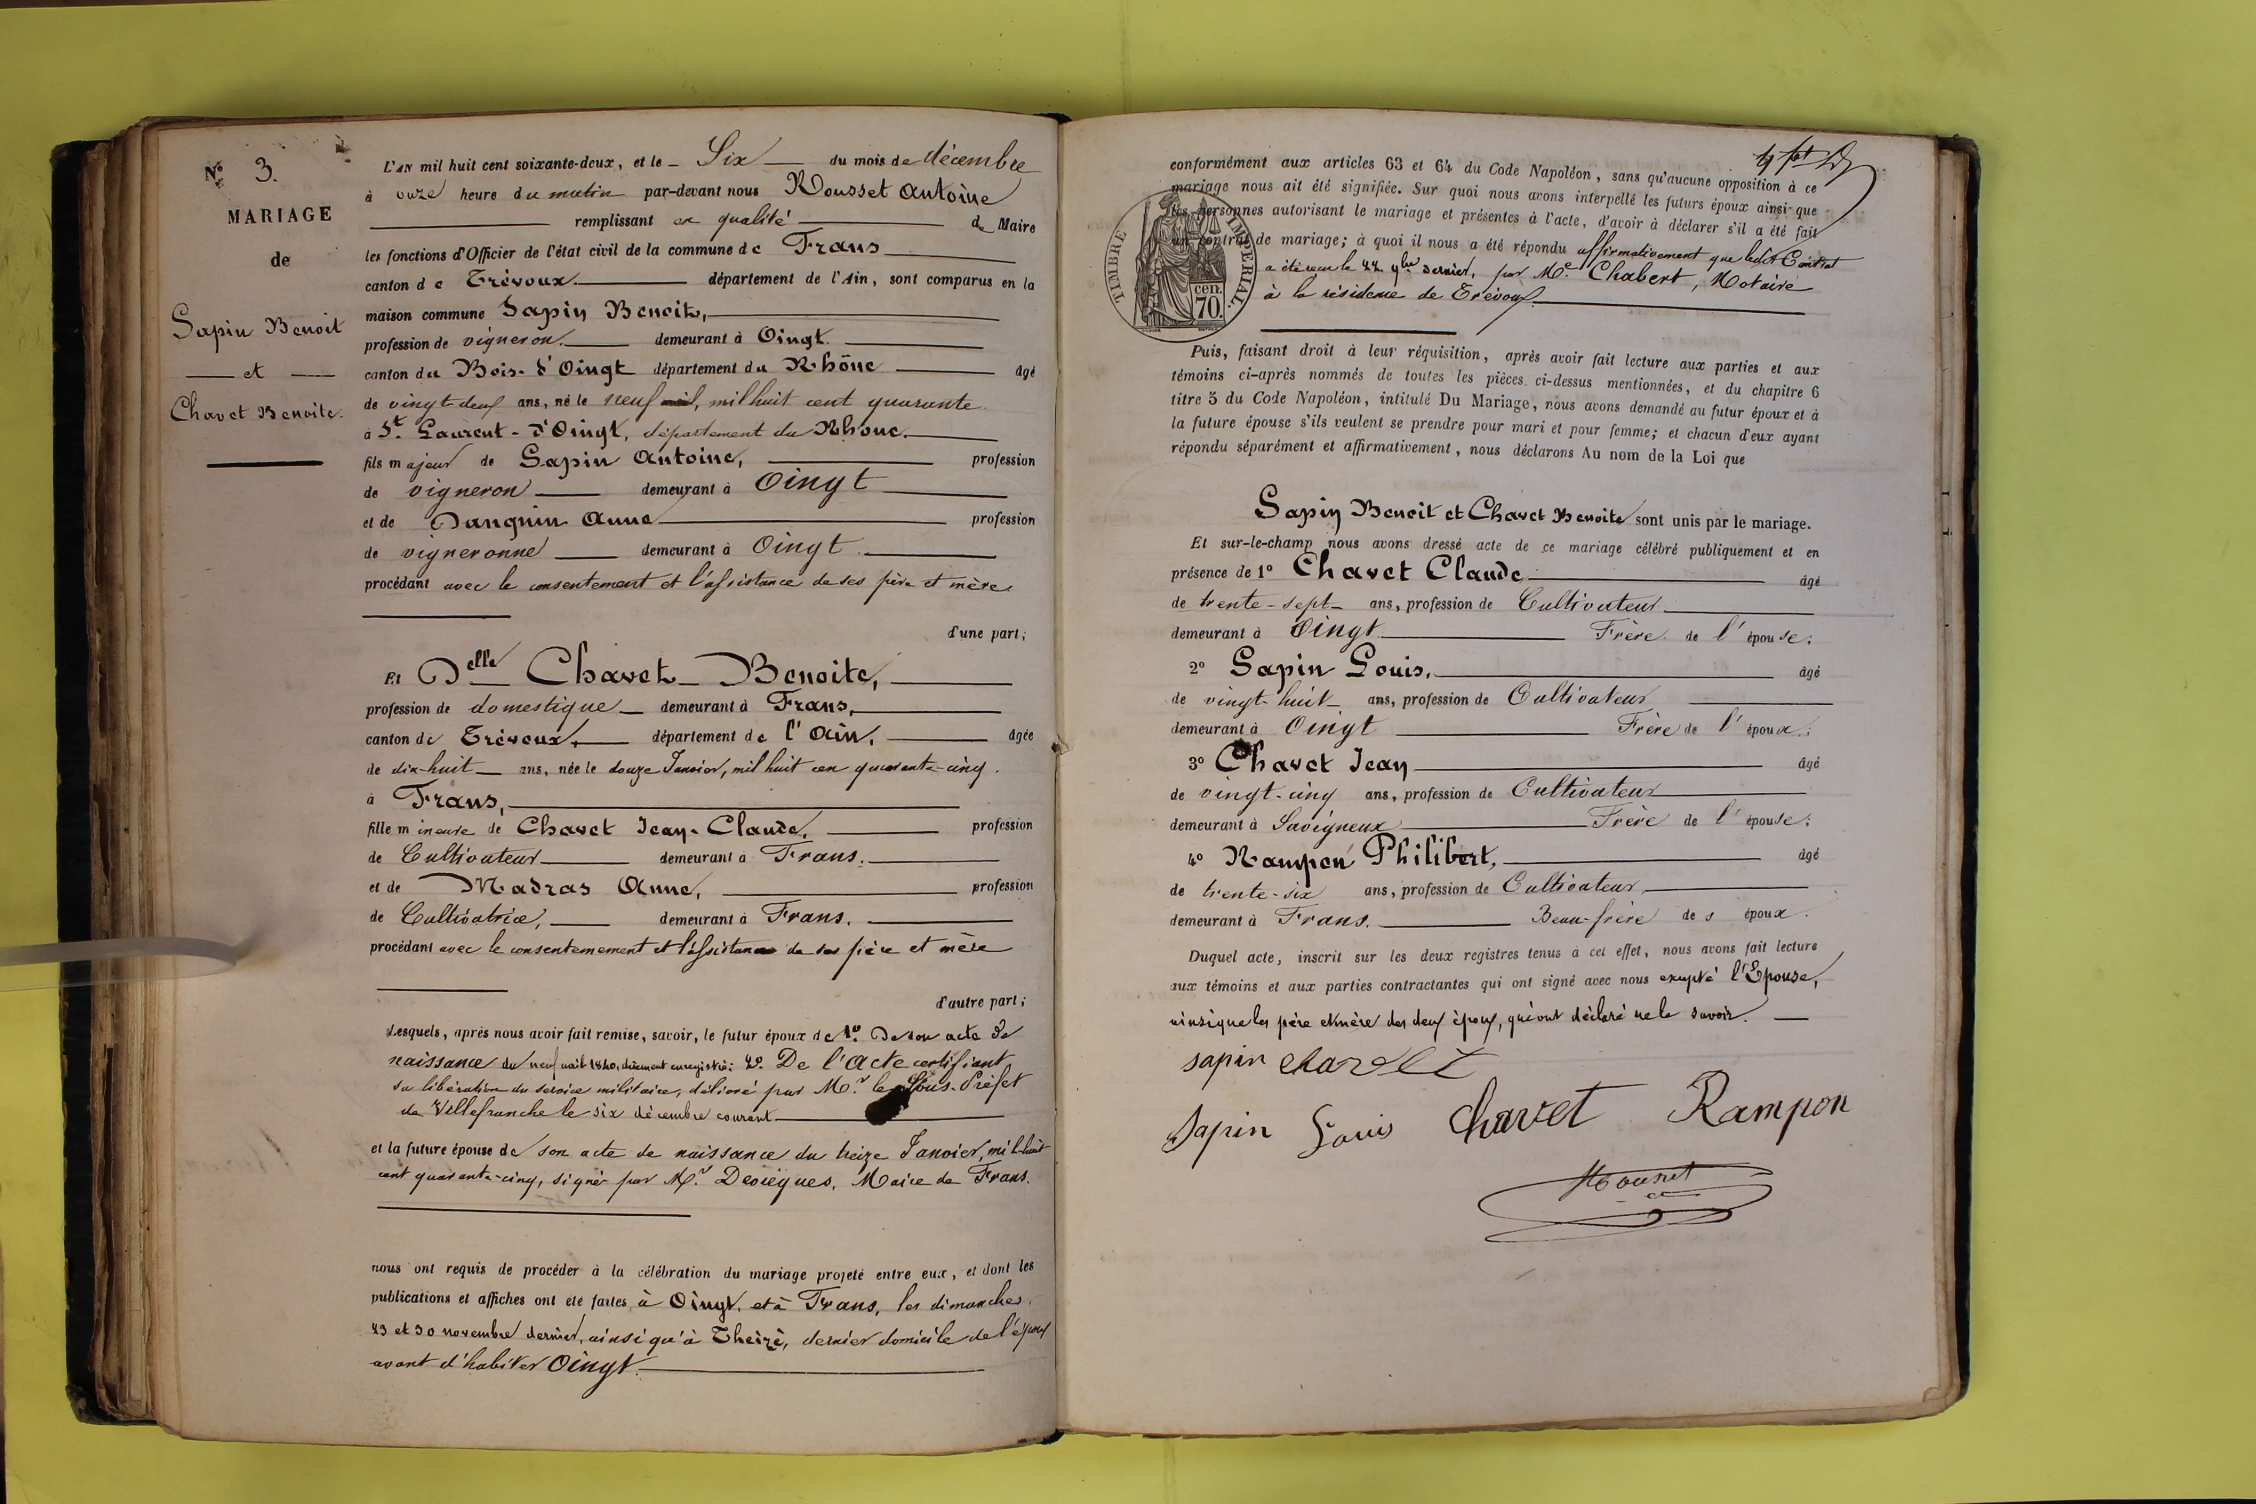 N.° 3.
MARIAGE
de
Sapin Benoit
et
Chavet Benoite.
L'AN mil huit cent soixante-deux, et le Six du mois de décembre
à onze heure du matin par-devant nous Rousset Antoine
remplissant en qualité de Maire
les fonctions d'Officier de l'état civil de la commune de Frans
canton de Trévoux. département de l'Ain, sont comparus en la
maison commune Sapin Benoit,
profession de vigneron. demeurant à Oingt.
canton du Bois-d'Oingt département du Rhône âgé
de vingt-deux ans, né le neuf mil huit cent quarante
à St. Laurent-d'Oingt, département du Rhône.
fils majeur de Sapin Antoine, profession
de vigneron demeurant à Oingt
et de Danguin Anne profession
de vigneronne demeurant à Oingt
procédant avec le consentement et l'assistance de ses père et mère
d'une part;
Et Delle Chavet Benoite,
profession de domestique demeurant à Frans,
canton de Trévoux, département de l'Ain, âgée
de dix-huit ans, née le douze Janvier, mil huit cen quarante-cinq.
à Frans,
fille mineure de Chavet Jean-Claude, profession
de Cultivateur demeurant à Frans.
et de Madras Anne, profession
de Cultivatrice, demeurant à Frans.
procédant avec le consentemement et l'assistance de ses père et mère
d'autre part;
Lesquels, après nous avoir fait remise, savoir, le futur époux de 1°. De son acte de
naissance du neuf 1840, dûement enregistré; 2°. De l'Acte certifiant
sa libération du service militaire, délivré par Mr. le Sous-Préfet
de Villefranche le six décembre courant
et la future épouse de son acte de naissance du treize Janvier, mil-huit
cent quarante-cinq, signé par Mr. Maire de Frans.
nous ont requis de procéder à la célébration du mariage projeté entre eux, et dont les
publications et affiches ont été faites à Oingt, et à Frans, les dimanches
23 et 30 novembre dernier, ainsi qu'à Theizé, dernier domicile de l'époux
avant d'habiter Oingt.
conformément aux articles 63 et 64 du Code Napoléon, sans qu'aucune opposition à ce
mariage nous ait été signifiée. Sur quoi nous avons interpellé les futurs époux ainsi que
les personnes autorisant le mariage et présentes à l'acte, d'avoir à déclarer s'il a été fait
un contrat de mariage; à quoi il nous a été répondu affirmativement que ledit Contrat
a été reçu le 22 9bre dernier, par Me. Chabert, Notaire
à la résidence de Trévoux.
TIMBRE IMPERIAL.
70. cen.
Puis, faisant droit à leur réquisition, après avoir fait lecture aux parties et aux
témoins ci-après nommés de toutes les pièces ci-dessus mentionnées, et du chapitre 6
titre 5 du Code Napoléon, intitulé Du Mariage, nous avons demandé au futur époux et à
la future épouse s'ils veulent se prendre pour mari et pour femme; et chacun d'eux ayant
répondu séparément et affirmativement, nous déclarons Au nom de la Loi que
Sapin Benoit et Chavet Benoite sont unis par le mariage.
Et sur-le-champ nous avons dressé acte de ce mariage célébré publiquement et en
présence de 1° Chavet Claude âgé
de trente-sept ans, profession de Cultivateur
demeurant à Oingt Frère de l'épouse;
2° Sapin Louis, âgé
de vingt-huit ans, profession de Cultivateur
demeurant à Oingt Frère de l'époux;
3° Chavet Jean âgé
de vingt-cinq ans, profession de Cultivateur
demeurant à Savigneux Frère de l'épouse;
4° Rampon Philibert, âgé
de trente-six ans, profession de Cultivateur
demeurant à Frans. Beau-frère des époux.
Duquel acte, inscrit sur les deux registres tenus à cet effet, nous avons fait lecture
aux témoins et aux parties contractantes qui ont signé avec nous excepté l'Epouse,
ainsique les père et mère des deux époux, qui ont déclaré ne le savoir.
sapin chavet
Sapin Louis Chavet Rampon
Rousset